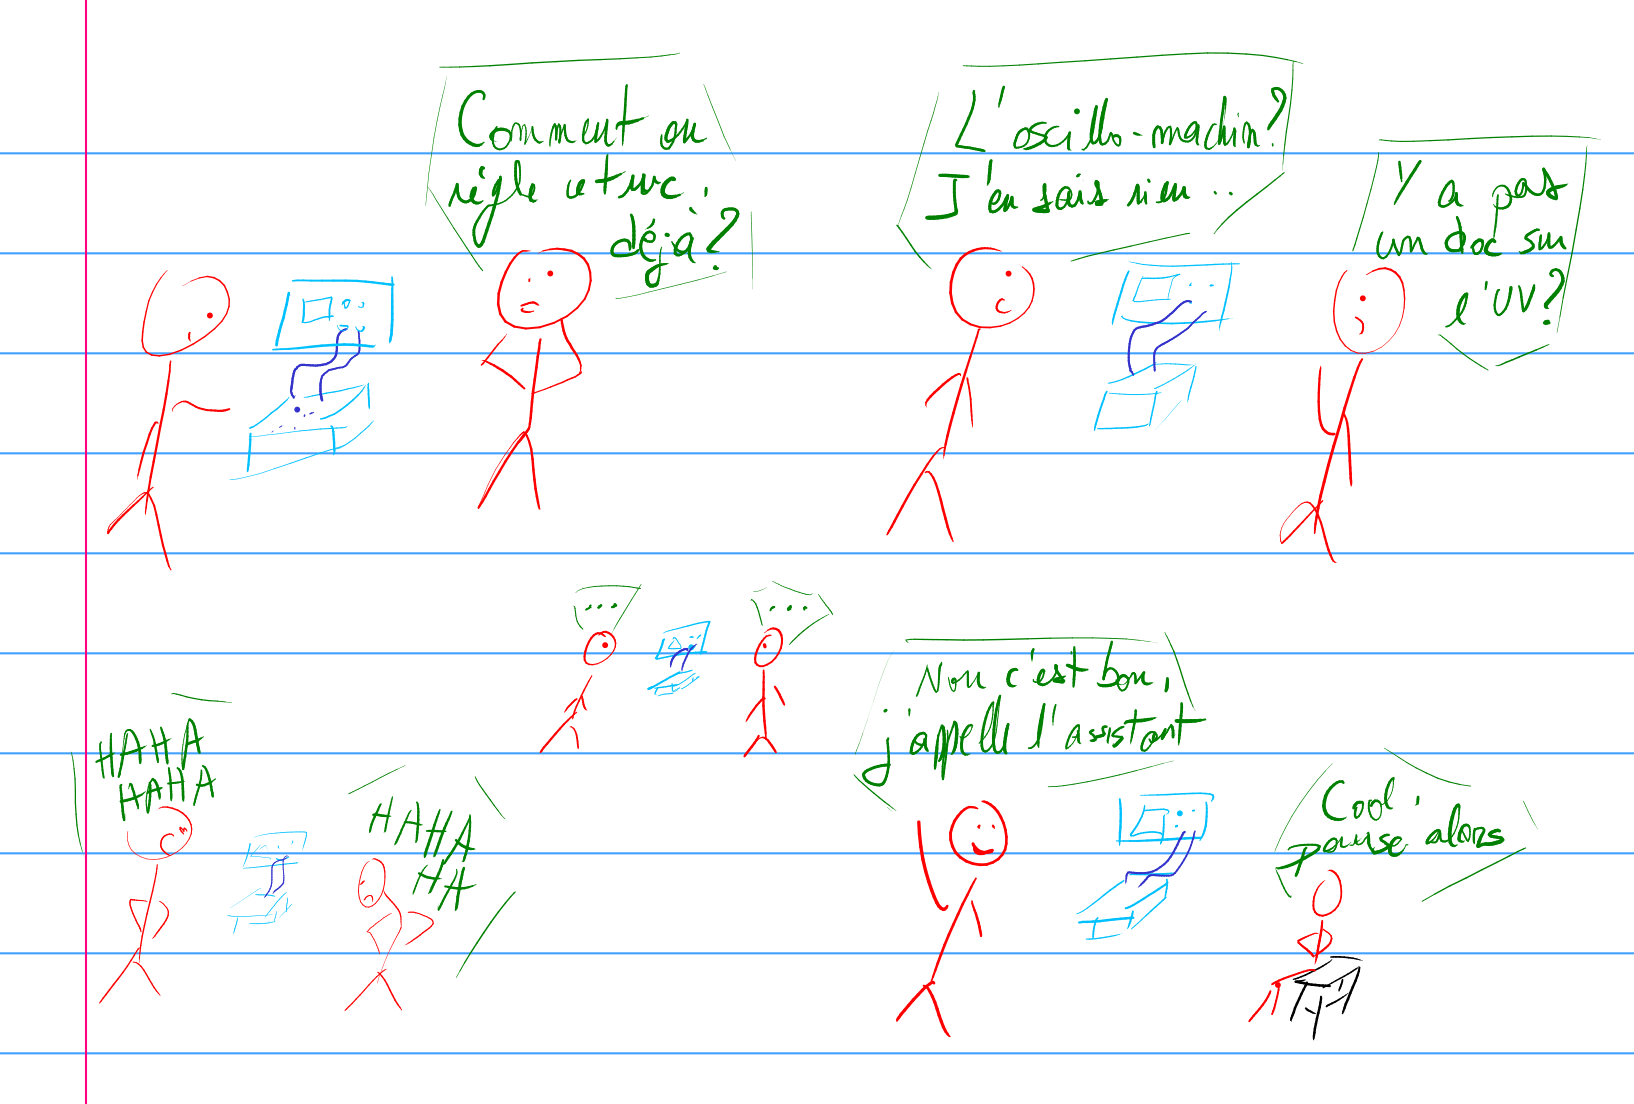 Comment on
règle ce truc,
déjà?
L'oscillo-machin?
J'en sais rien..
Y a pas
un doc sur
l'UV?
...
...
HAHA
HAHA
HAHA
HA
Non c'est bon,
j'appelle l'assistant
Cool,
pause alors